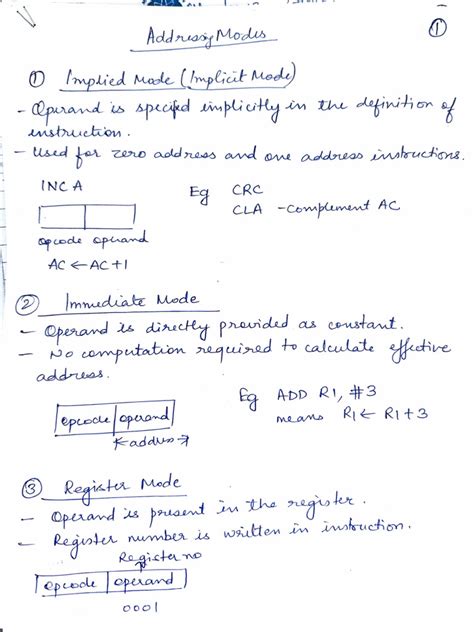 Addressing Modes
1
① Implied Mode (Implicit Mode)
- Operand is specified implicitly in the definition of
instruction.
- Used for zero address and one address instructions.
INC A
Eg CRC
CLA - Complement AC
opcode operand
AC ← AC + 1
② Immediate Mode
- Operand is directly provided as constant.
- No computation required to calculate effective
address.
Eg ADD R1, #3
means R1 ← R1 + 3
opcode operand
address
③ Register Mode
- Operand is present in the register.
- Register number is written in instruction.
Register no
opcode operand
0001